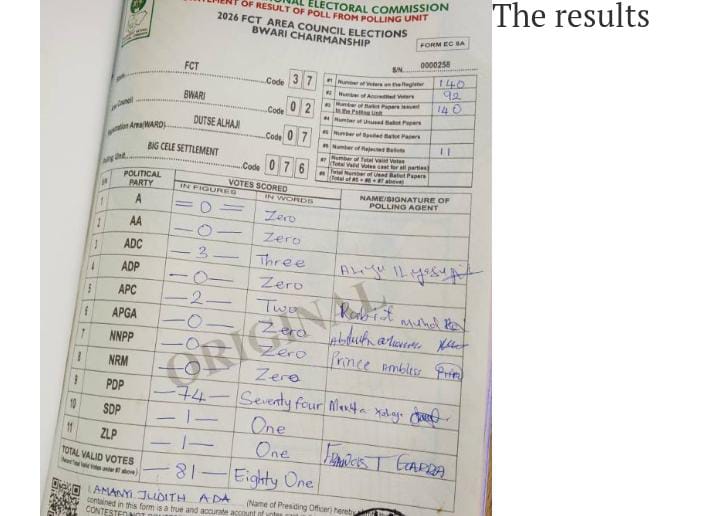 NAL ELECTORAL COMMISSION
TEMENT OF RESULT OF POLL FROM POLLING UNIT
2026 FCT AREA COUNCIL ELECTIONS
BWARI CHAIRMANSHIP
The results
FORM EC 8A
S/N 0000258
FCT Code 3 7
BWARI Code 0 2
Area(WARD) DUTSE ALHAJI Code 0 7
BIG CELE SETTLEMENT Code 0 7 6
#1 Number of Voters on the Register 140
#2 Number of Accredited Voters 92
#3 Number of Ballot Papers Issued to the Polling Unit 140
#4 Number of Unused Ballot Papers
#5 Number of Spoiled Ballot Papers
#6 Number of Rejected Ballots 11
#7 Number of Total Valid Votes (Total Valid Votes cast for all parties)
#8 Total Number of Used Ballot Papers (Total of #5 + #6 + #7 above)
S/N POLITICAL PARTY VOTES SCORED NAME/SIGNATURE OF POLLING AGENT
IN FIGURES IN WORDS
1 A = 0 = Zero
2 AA — 0 — Zero
3 ADC — 3 — Three
4 ADP — 0 — Zero
5 APC — 2 — Two
6 APGA — 0 — Zero
7 NNPP — 0 — Zero Prince
8 NRM — 0 — Zero
9 PDP — 74 — Seventy four
10 SDP — 1 — One
11 ZLP — 1 — One FRANCIS T
TOTAL VALID VOTES — 81 — Eighty One
ORIGINAL
I, AMANYI JUDITH ADA (Name of Presiding Officer) hereby
contained in this form is a true and accurate account of votes